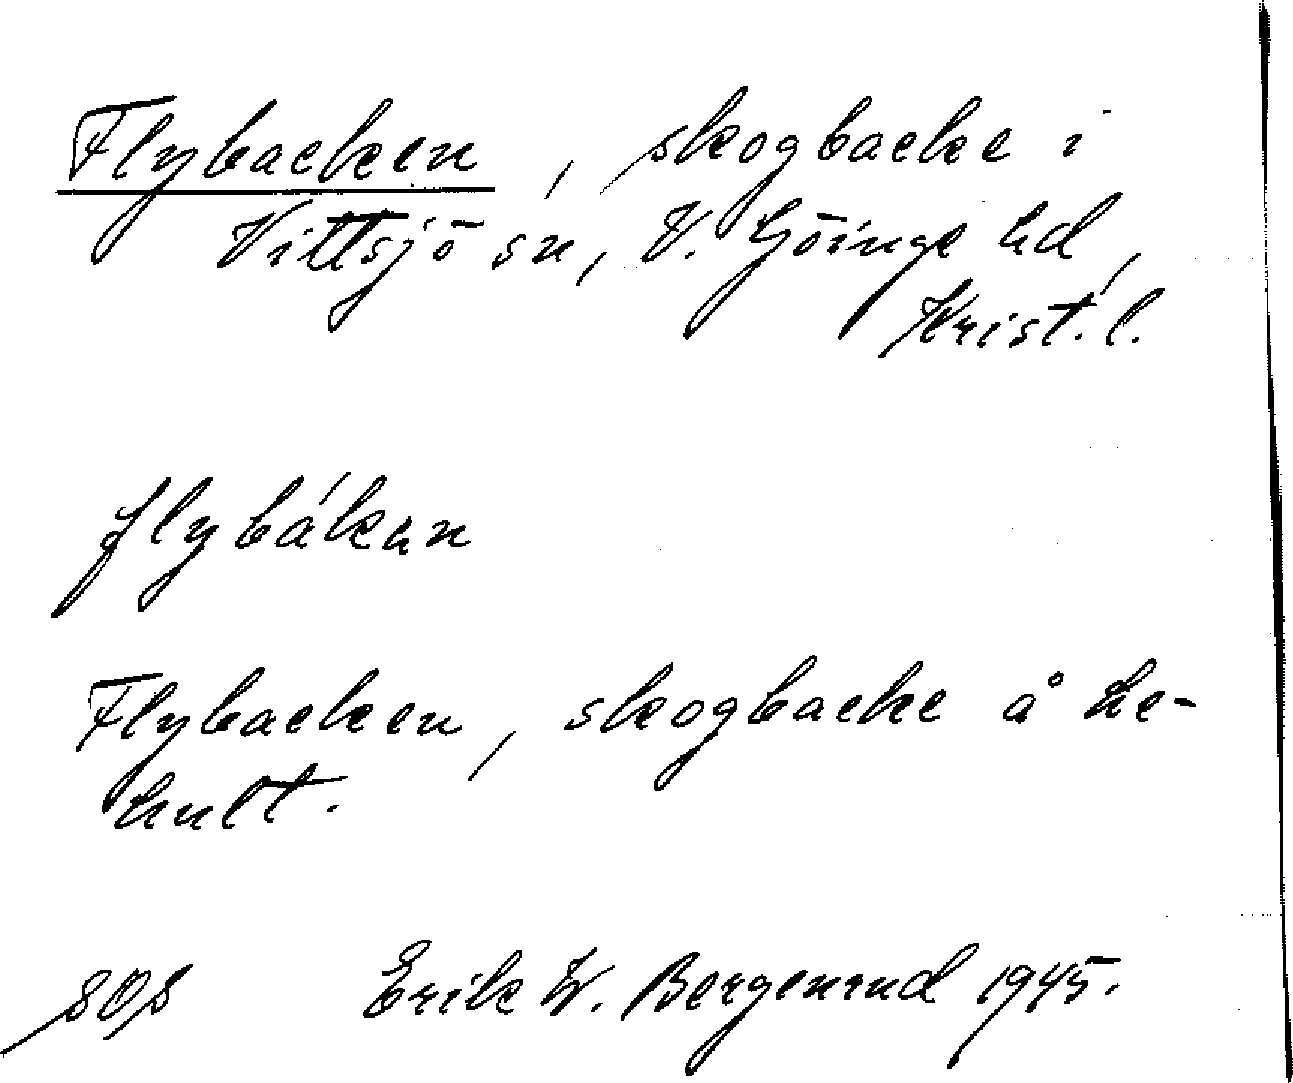 Flybacken, skogbacke i
Vittsjö sn, V. Göinge hd,
Krist. l.
flybákan
Flybacken, skogbacke å He-
hult.
SOS Erik W. Bergenrud 1945.